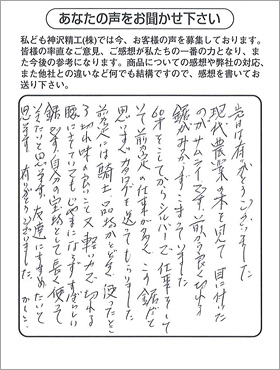 あなたの声をお聞かせ下さい
私ども神沢精工(株)では今、お客様の声を募集しております。
皆様の率直なご意見、ご感想が私たちの一番の力となり、ま
た今後の参考になります。商品についての感想や弊社の対応、
また他社との違いなど何でも結構ですので、感想を書いてお
送り下さい。
先日は有がとうございました
現代農業の本を見て 目に付いた
のがサムライです 前の良く切れる
鋸がみつかずこまっていました
60才をこしてからシルバーで仕事をして
いて 前定の仕事が多く この鋸だと
思いすぐカタログを送ってもらいました
前定には騎士 品技かとどき 使ったところ
切れ味の良いこと又軽い力で切れる
腰に下っていてもじゃまにならず すばらしい
鋸です 自分の宝物として長く使って
いきたいと思います 友達にもすすめたいと
思います 有がとうございました かしこ